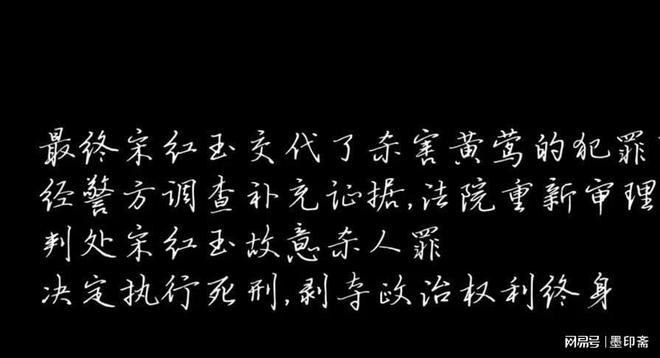 最终宋红玉交代了杀害黄莺的犯罪
经警方调查补充证据,法院重新审理
判处宋红玉故意杀人罪
决定执行死刑,剥夺政治权利终身
网易号 | 墨印斋